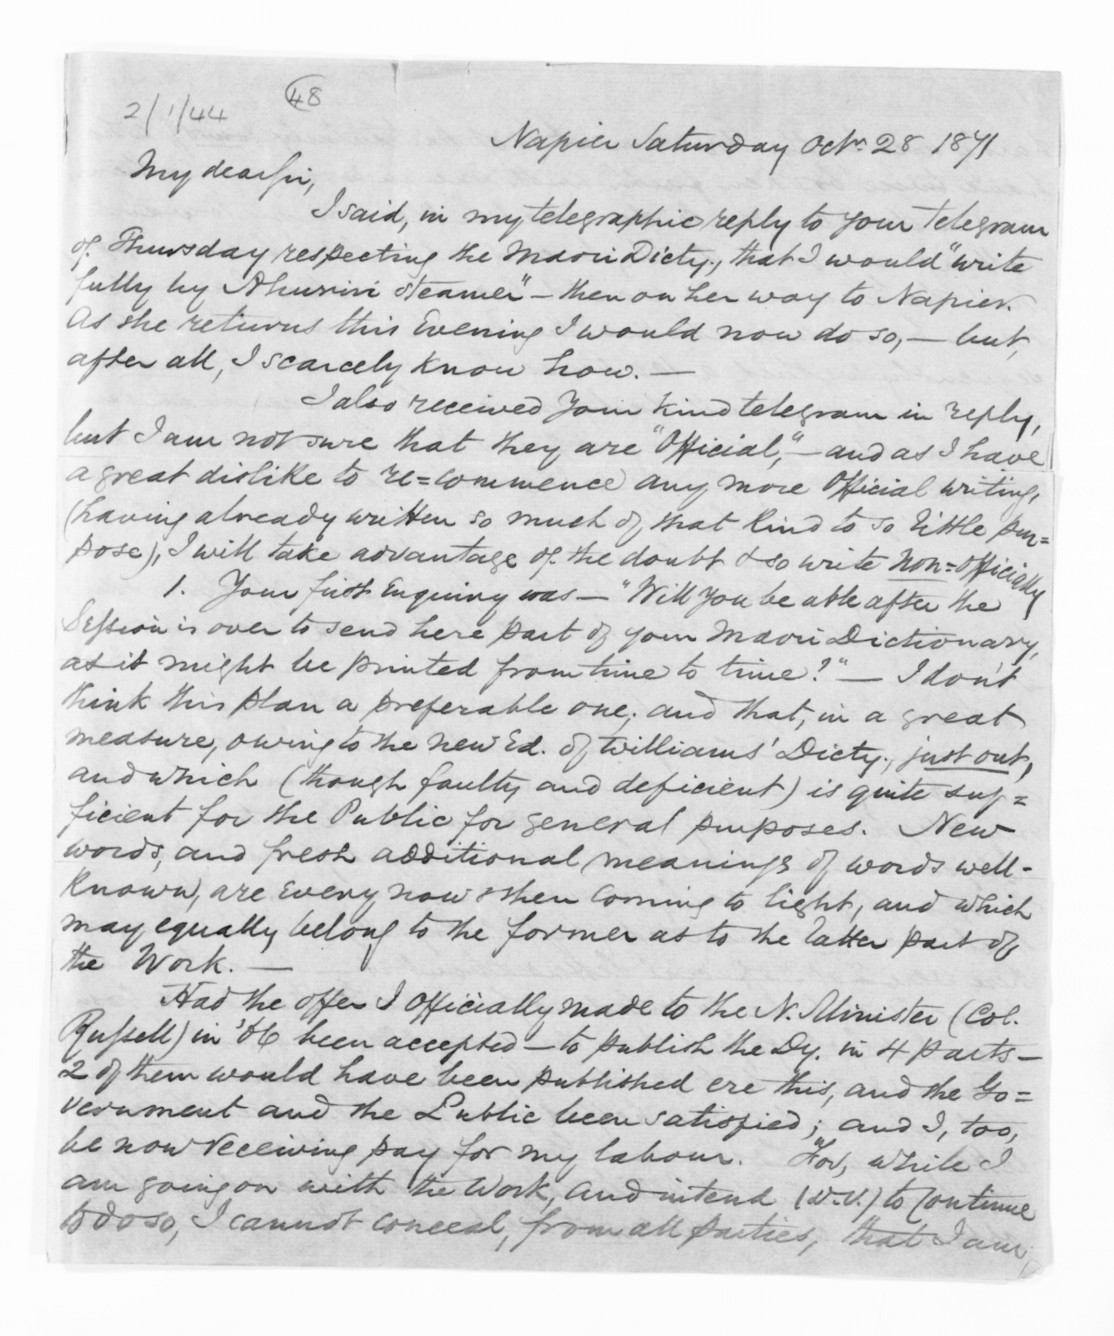 2/1/44
48
Napier Saturday Octr. 28 1871
My dear Sir,
I said, in my telegraphic reply to your Telegram
of Thursday respecting the Maori Dicty., that I would "write
fully by Ahuriri Steamer" – then on her way to Napier.
As she returns this Evening I would now do so, – but,
after all, I scarcely know how. –
I also received your kind telegram in reply,
but I am not sure that they are "Official," – and as I have
a great dislike to re=commence any more Official writing,
(having already written so much of that kind to so little pur=
pose), I will take advantage of the doubt & so write non=officially
1. Your first Enquiry was – "Will you be able after the
Session is over to send here part of your Maori Dictionary,
as it might be printed from time to time?" – I don't
think this plan a preferable one; and that, in a great
measure, owing to the new Ed. of Williams' Dicty., just out,
and which (though faulty and deficient) is quite suf=
ficient for the Public for general purposes. New
words, and fresh additional meanings of words well-
known, are every now & then coming to light, and which
may equally belong to the former as to the latter part of
the Work. –
Had the offer I officially made to the N. Minister (Col.
Russell) in '66 been accepted – to publish the Dy. in 4 parts –
2 of them would have been published ere this, and the Go=
vernment and the Public been satisfied; and I, too,
be now receiving pay for my labour. For, while I
am going on with the Work, and intend (D.V.) to continue
to do so, I cannot conceal, from all parties, that I am